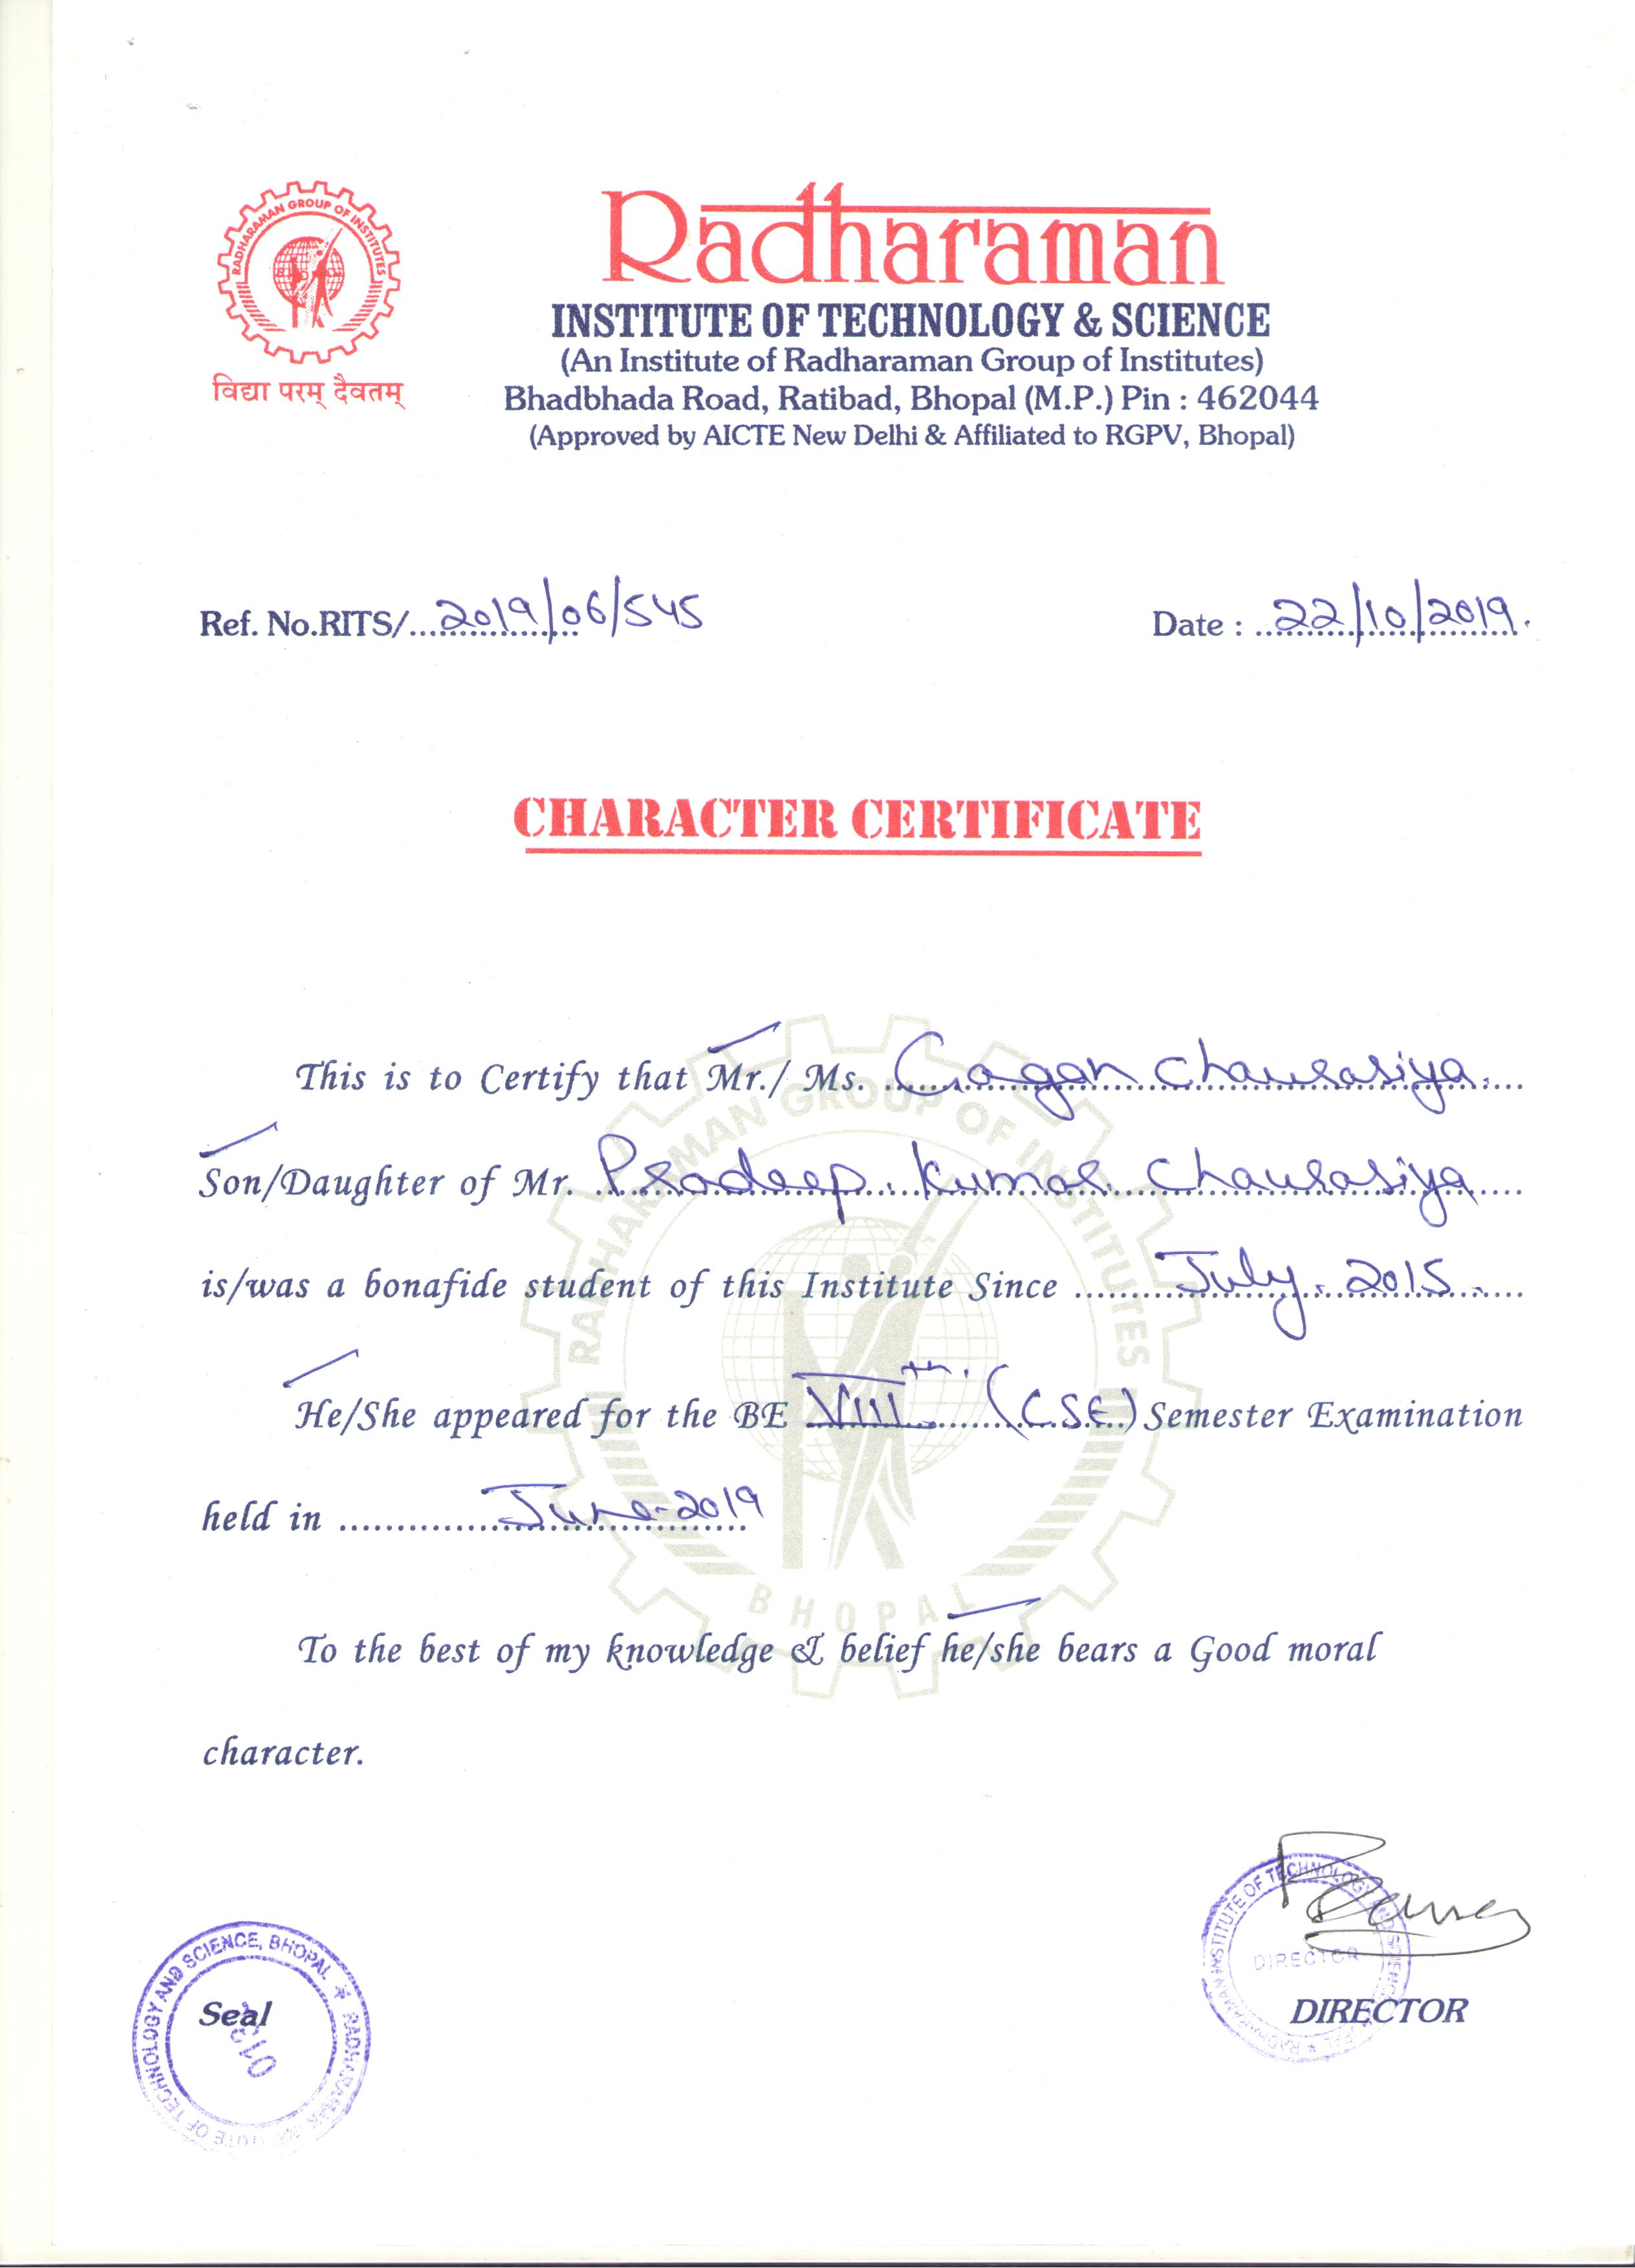 RADHARAMAN GROUP OF INSTITUTES
विद्या परम् दैवतम्
Radharaman
INSTITUTE OF TECHNOLOGY & SCIENCE
(An Institute of Radharaman Group of Institutes)
Bhadbhada Road, Ratibad, Bhopal (M.P.) Pin : 462044
(Approved by AICTE New Delhi & Affiliated to RGPV, Bhopal)
Ref. No.RITS/...2019/06/545 Date : 22/10/2019.
CHARACTER CERTIFICATE
This is to Certify that Mr./ Ms. Gagan Chaurasiya
Son/Daughter of Mr. Pradeep Kumar Chaurasiya
is/was a bonafide student of this Institute Since July. 2015
He/She appeared for the BE VIIIth. (C.S.E.) Semester Examination
held in June-2019
To the best of my knowledge & belief he/she bears a Good moral
character.
RADHARAMAN GROUP OF INSTITUTES
BHOPAL
RADHARAMAN INSTITUTE OF TECHNOLOGY AND SCIENCE
DIRECTOR
DIRECTOR
OF TECHNOLOGY AND SCIENCE, BHOPAL * RADHARAMAN
Seal